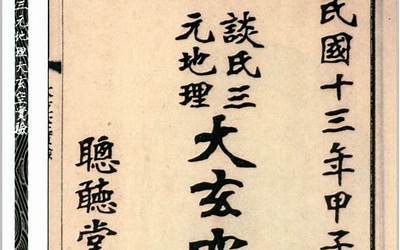 民國十三年甲子
談氏三
元地理
大玄空
聰聽堂
三元地理大玄空實驗